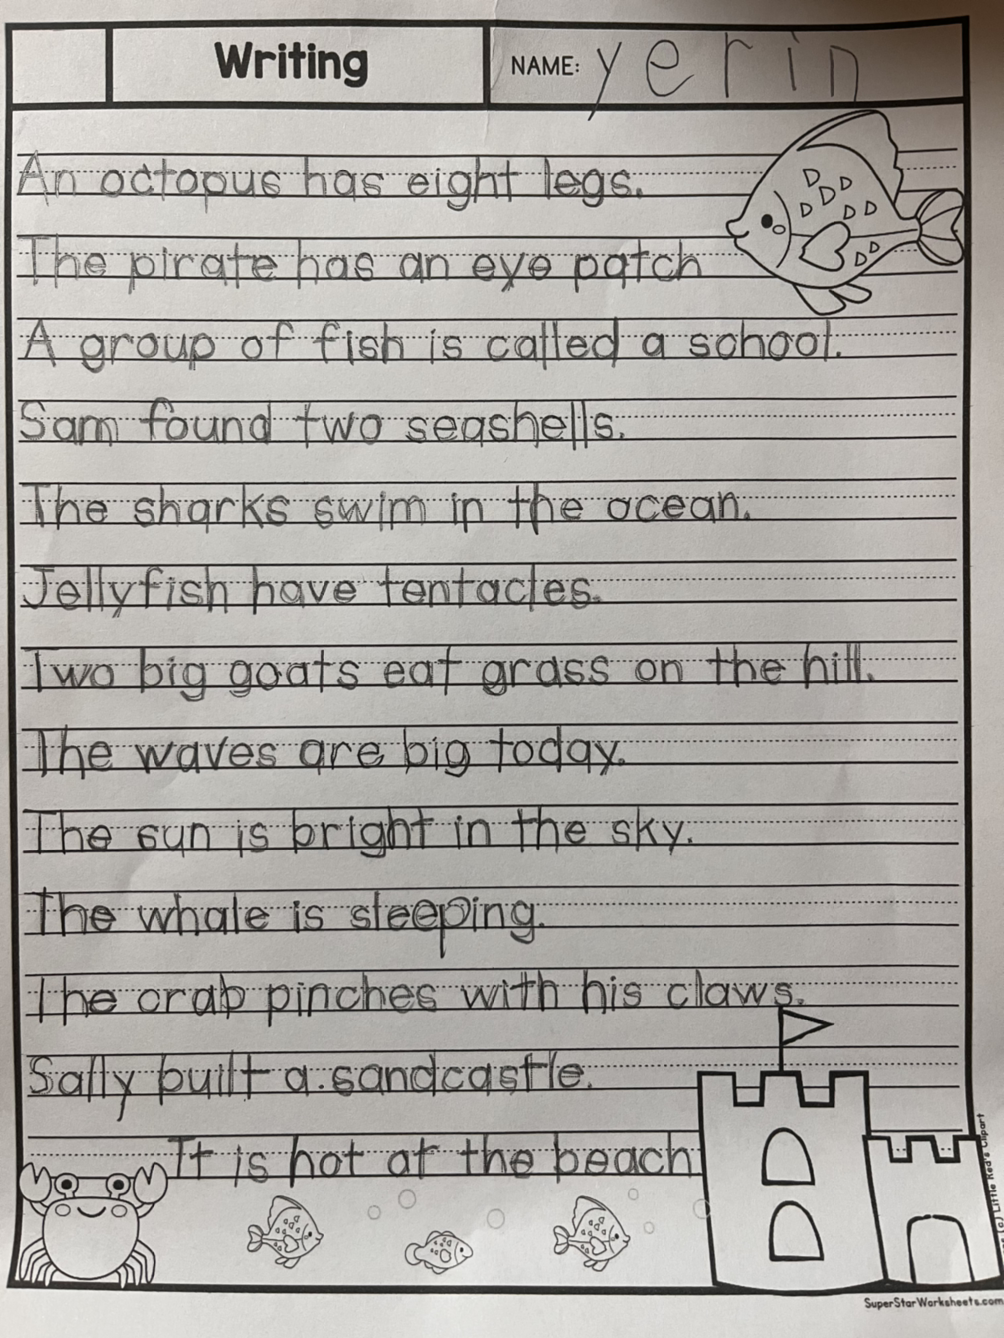 Writing NAME: yerin
An octopus has eight legs.
The pirate has an eye patch
A group of fish is called a school.
Sam found two seashells.
The sharks swim in the ocean.
Jellyfish have tentacles.
Two big goats eat grass on the hill.
The waves are big today.
The sun is bright in the sky.
The whale is sleeping.
The crab pinches with his claws.
Sally built a sandcastle.
It is hot at the beach
(c) Little Red's Clipart
SuperStarWorksheets.com